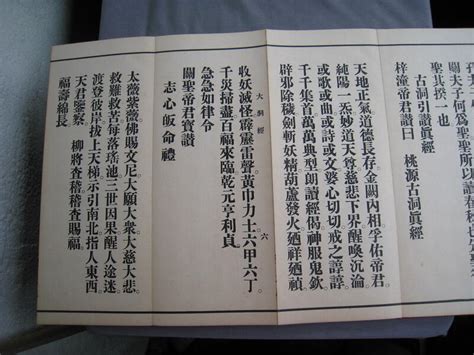 孔
關夫子何爲聖聖所以
聖其揆一也
古洞引讃眞經
梓潼帝君讃曰 桃源古洞眞經
天地正氣道德長存金闕內相孚佑帝君
純陽一炁妙道天尊慈悲下界醒喚沉淪
或歌或曲或詩或文婆心切切戒之諄諄
千千集百萬萬典型朗讀經偈神服鬼欽
辟邪除穢劍斬妖精葫蘆發火廼祥廼禎
大洞經
六
收妖滅怪霹靂雷聲黃巾力士六甲六丁
千災掃盡百福來臨乾元亨利貞
急急如律令
關聖帝君寶讃
志心皈命禮
太薇紫薇佛賜文尼大願大衆大慈大悲
救難救苦每落瑤池三世因果醒人途迷
渡登彼岸拔上天梯示引南北指人東西
天君鑒察 柳將查稽稽查賜福
福壽綿長